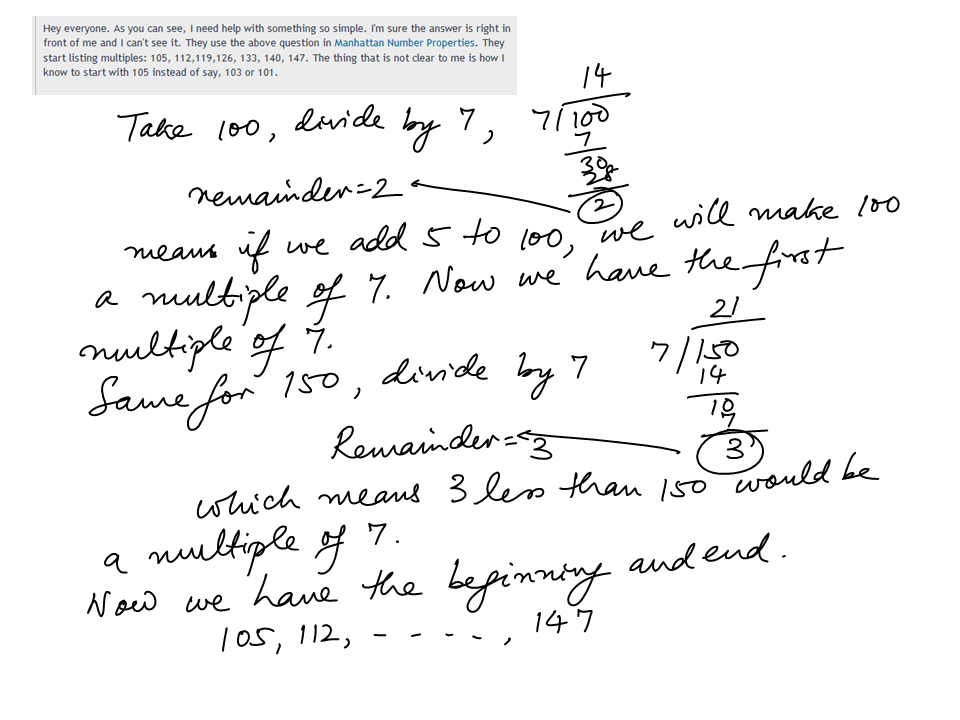 Hey everyone. As you can see, I need help with something so simple. I'm sure the answer is right in
front of me and I can't see it. They use the above question in Manhattan Number Properties. They
start listing multiples: 105, 112,119,126, 133, 140, 147. The thing that is not clear to me is how I
know to start with 105 instead of say, 103 or 101.
14
Take 100, divide by 7, 7/100
7
30
28
remainder=2 2
means if we add 5 to 100, we will make 100
a multiple of 7. Now we have the first
multiple of 7.
21
Same for 150, divide by 7 7/150
14
10
7
Remainder=3 3
which means 3 less than 150 would be
a multiple of 7.
Now we have the beginning and end.
105, 112, - - - - -, 147